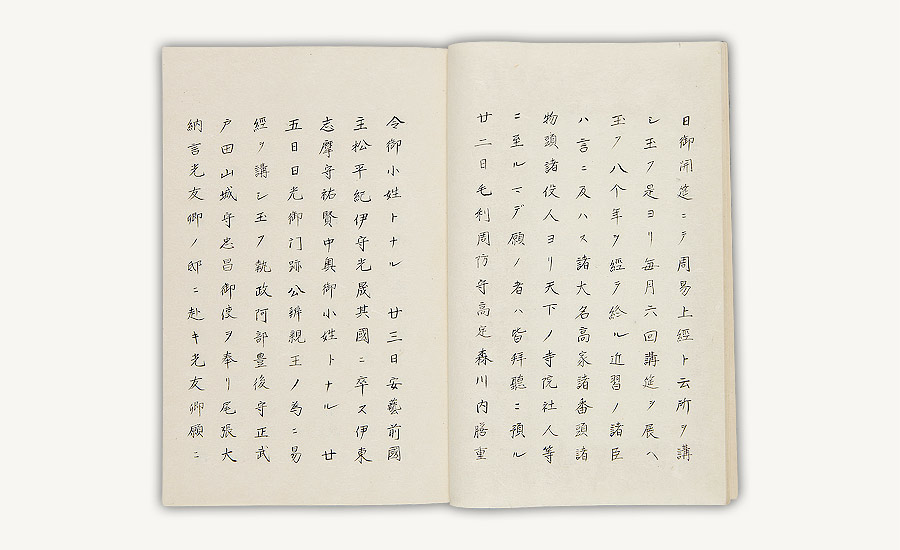 日御開筵ニテ周易上經ト云所ヲ講
シ玉フ是ヨリ毎月六回講筵ヲ展ヘ
玉フ八个年ヲ經テ終ル近習ノ諸臣
ハ言ニ及ハス諸大名高家諸番頭諸
物頭諸役人ヨリ天下ノ寺院社人等
ニ至ルマデ願ノ者ハ皆拜聽ニ預ル
廿二日毛利周防守高定森川内膳重
令御小姓トナル 廿三日安藝前國
主松平紀伊守光晟其國ニ卒ス伊東
志摩守祐賢中奥御小姓トナル 廿
五日日光御门跡公辨親王ノ為ニ易
經ヲ講シ玉フ執政阿部豊後守正武
戸田山城守忠昌御使ヲ奉リ尾張大
納言光友卿ノ邸ニ赴キ光友卿願ニ